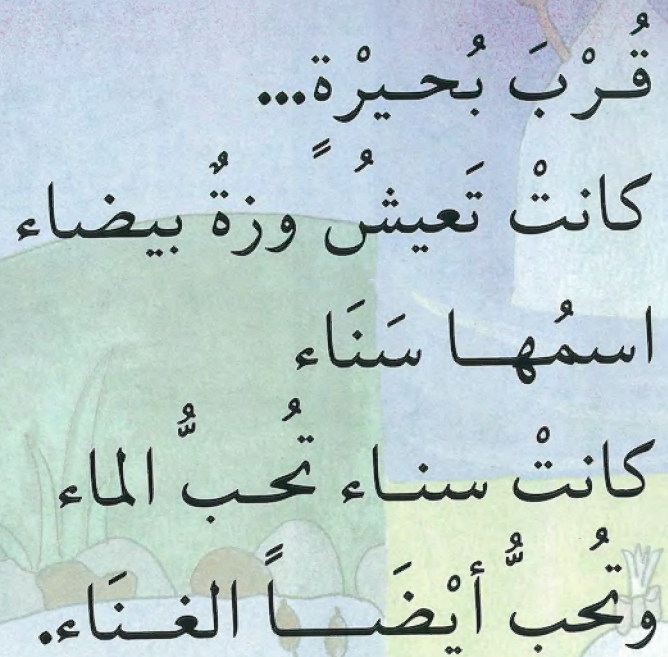 قُرْبَ بُحيرْةٍ...
كانتْ تَعيشُ وزةٌ بيضاء
اسمُهـا سَنَاء
كانتْ سناء تُحبُّ الماء
وتُحبُّ أيْضَـاً الغنَاء.